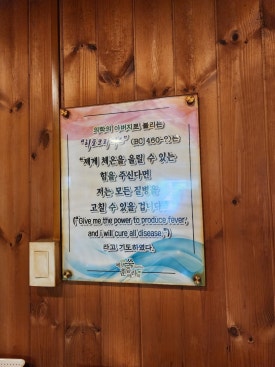 의학의 아버지로 불리는
"히포크라테스" (BC 460-?)는
"제게 체온을 올릴 수 있는
힘을 주신다면
저는 모든 질병을
고칠 수 있을 겁니다"
("Give me the power to produce fever,
and i will cure all disease.")
라고 기도하였다.